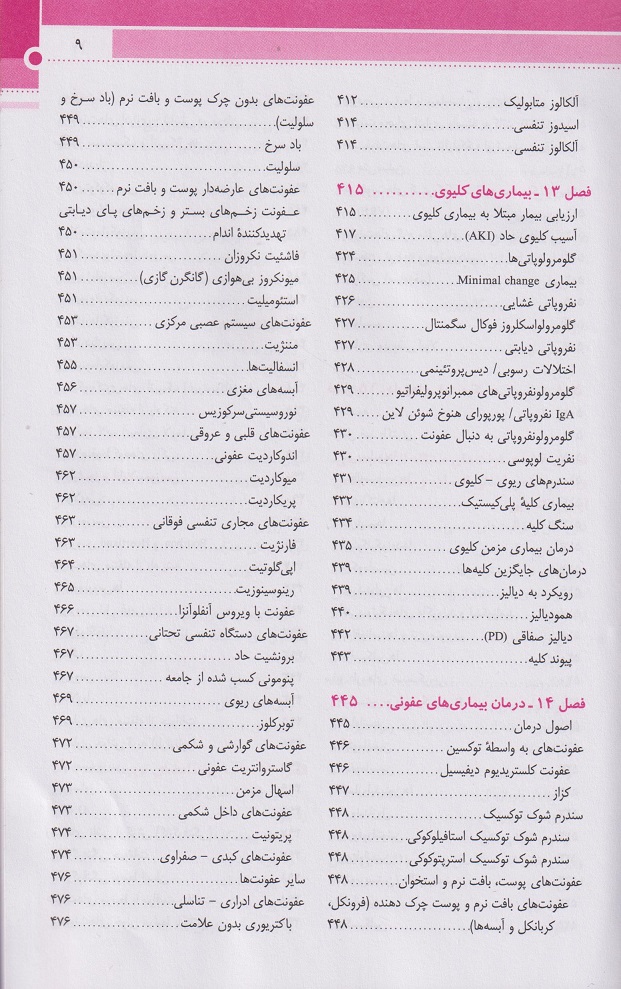 ۹
آلکالوز متابولیک ............ ۴۱۲
اسیدوز تنفسی ............ ۴۱۴
آلکالوز تنفسی ............ ۴۱۴
فصل ۱۳ ـ بیماری‌های کلیوی ............ ۴۱۵
ارزیابی بیمار مبتلا به بیماری کلیوی ............ ۴۱۵
آسیب کلیوی حاد (AKI) ............ ۴۱۷
گلومرولوپاتی‌ها ............ ۴۲۴
بیماری Minimal change ............ ۴۲۵
نفروپاتی غشایی ............ ۴۲۶
گلومرولواسکلروز فوکال سگمنتال ............ ۴۲۷
نفروپاتی دیابتی ............ ۴۲۷
اختلالات رسوبی/ دیس‌پروتئینمی ............ ۴۲۸
گلومرولونفروپاتی‌های ممبرانوپرولیفراتیو ............ ۴۲۹
IgA نفروپاتی/ پورپورای هنوخ شوئن لاین ............ ۴۲۹
گلومرولونفروپاتی به دنبال عفونت ............ ۴۳۰
نفریت لوپوسی ............ ۴۳۰
سندرم‌های ریوی - کلیوی ............ ۴۳۱
بیماری کلیهٔ پلی‌کیستیک ............ ۴۳۲
سنگ کلیه ............ ۴۳۴
درمان بیماری مزمن کلیوی ............ ۴۳۵
درمان‌های جایگزین کلیه‌ها ............ ۴۳۹
رویکرد به دیالیز ............ ۴۳۹
همودیالیز ............ ۴۴۰
دیالیز صفاقی (PD) ............ ۴۴۲
پیوند کلیه ............ ۴۴۳
فصل ۱۴ ـ درمان بیماری‌های عفونی .... ۴۴۵
اصول درمان ............ ۴۴۵
عفونت‌های به واسطهٔ توکسین ............ ۴۴۶
عفونت کلستریدیوم دیفیسیل ............ ۴۴۶
کزاز ............ ۴۴۷
سندرم شوک توکسیک ............ ۴۴۸
سندرم شوک توکسیک استافیلوکوکی ............ ۴۴۸
سندرم شوک توکسیک استرپتوکوکی ............ ۴۴۸
عفونت‌های پوست، بافت نرم و استخوان ............ ۴۴۸
عفونت‌های بافت نرم و پوست چرک دهنده (فرونکل،
کربانکل و آبسه‌ها) ............ ۴۴۸
عفونت‌های بدون چرک پوست و بافت نرم (باد سرخ و
سلولیت) ............ ۴۴۹
باد سرخ ............ ۴۴۹
سلولیت ............ ۴۵۰
عفونت‌های عارضه‌دار پوست و بافت نرم ............ ۴۵۰
عفونت زخم‌های بستر و زخم‌های پای دیابتی
تهدیدکنندهٔ اندام ............ ۴۵۰
فاشئیت نکروزان ............ ۴۵۱
میونکروز بی‌هوازی (گانگرن گازی) ............ ۴۵۱
استئومیلیت ............ ۴۵۱
عفونت‌های سیستم عصبی مرکزی ............ ۴۵۳
مننژیت ............ ۴۵۳
انسفالیت‌ها ............ ۴۵۵
آبسه‌های مغزی ............ ۴۵۶
نوروسیستی‌سرکوزیس ............ ۴۵۷
عفونت‌های قلبی و عروقی ............ ۴۵۷
اندوکاردیت عفونی ............ ۴۵۷
میوکاردیت ............ ۴۶۲
پریکاردیت ............ ۴۶۲
عفونت‌های مجاری تنفسی فوقانی ............ ۴۶۳
فارنژیت ............ ۴۶۳
اپی‌گلوتیت ............ ۴۶۴
رینوسینوزیت ............ ۴۶۵
عفونت با ویروس آنفلوآنزا ............ ۴۶۶
عفونت‌های دستگاه تنفسی تحتانی ............ ۴۶۷
برونشیت حاد ............ ۴۶۷
پنومونی کسب شده از جامعه ............ ۴۶۷
آبسه‌های ریوی ............ ۴۶۹
توبرکلوز ............ ۴۶۹
عفونت‌های گوارشی و شکمی ............ ۴۷۲
گاستروانتریت عفونی ............ ۴۷۲
اسهال مزمن ............ ۴۷۳
عفونت‌های داخل شکمی ............ ۴۷۳
پریتونیت ............ ۴۷۴
عفونت‌های کبدی - صفراوی ............ ۴۷۴
سایر عفونت‌ها ............ ۴۷۶
عفونت‌های ادراری - تناسلی ............ ۴۷۶
باکتریوری بدون علامت ............ ۴۷۶